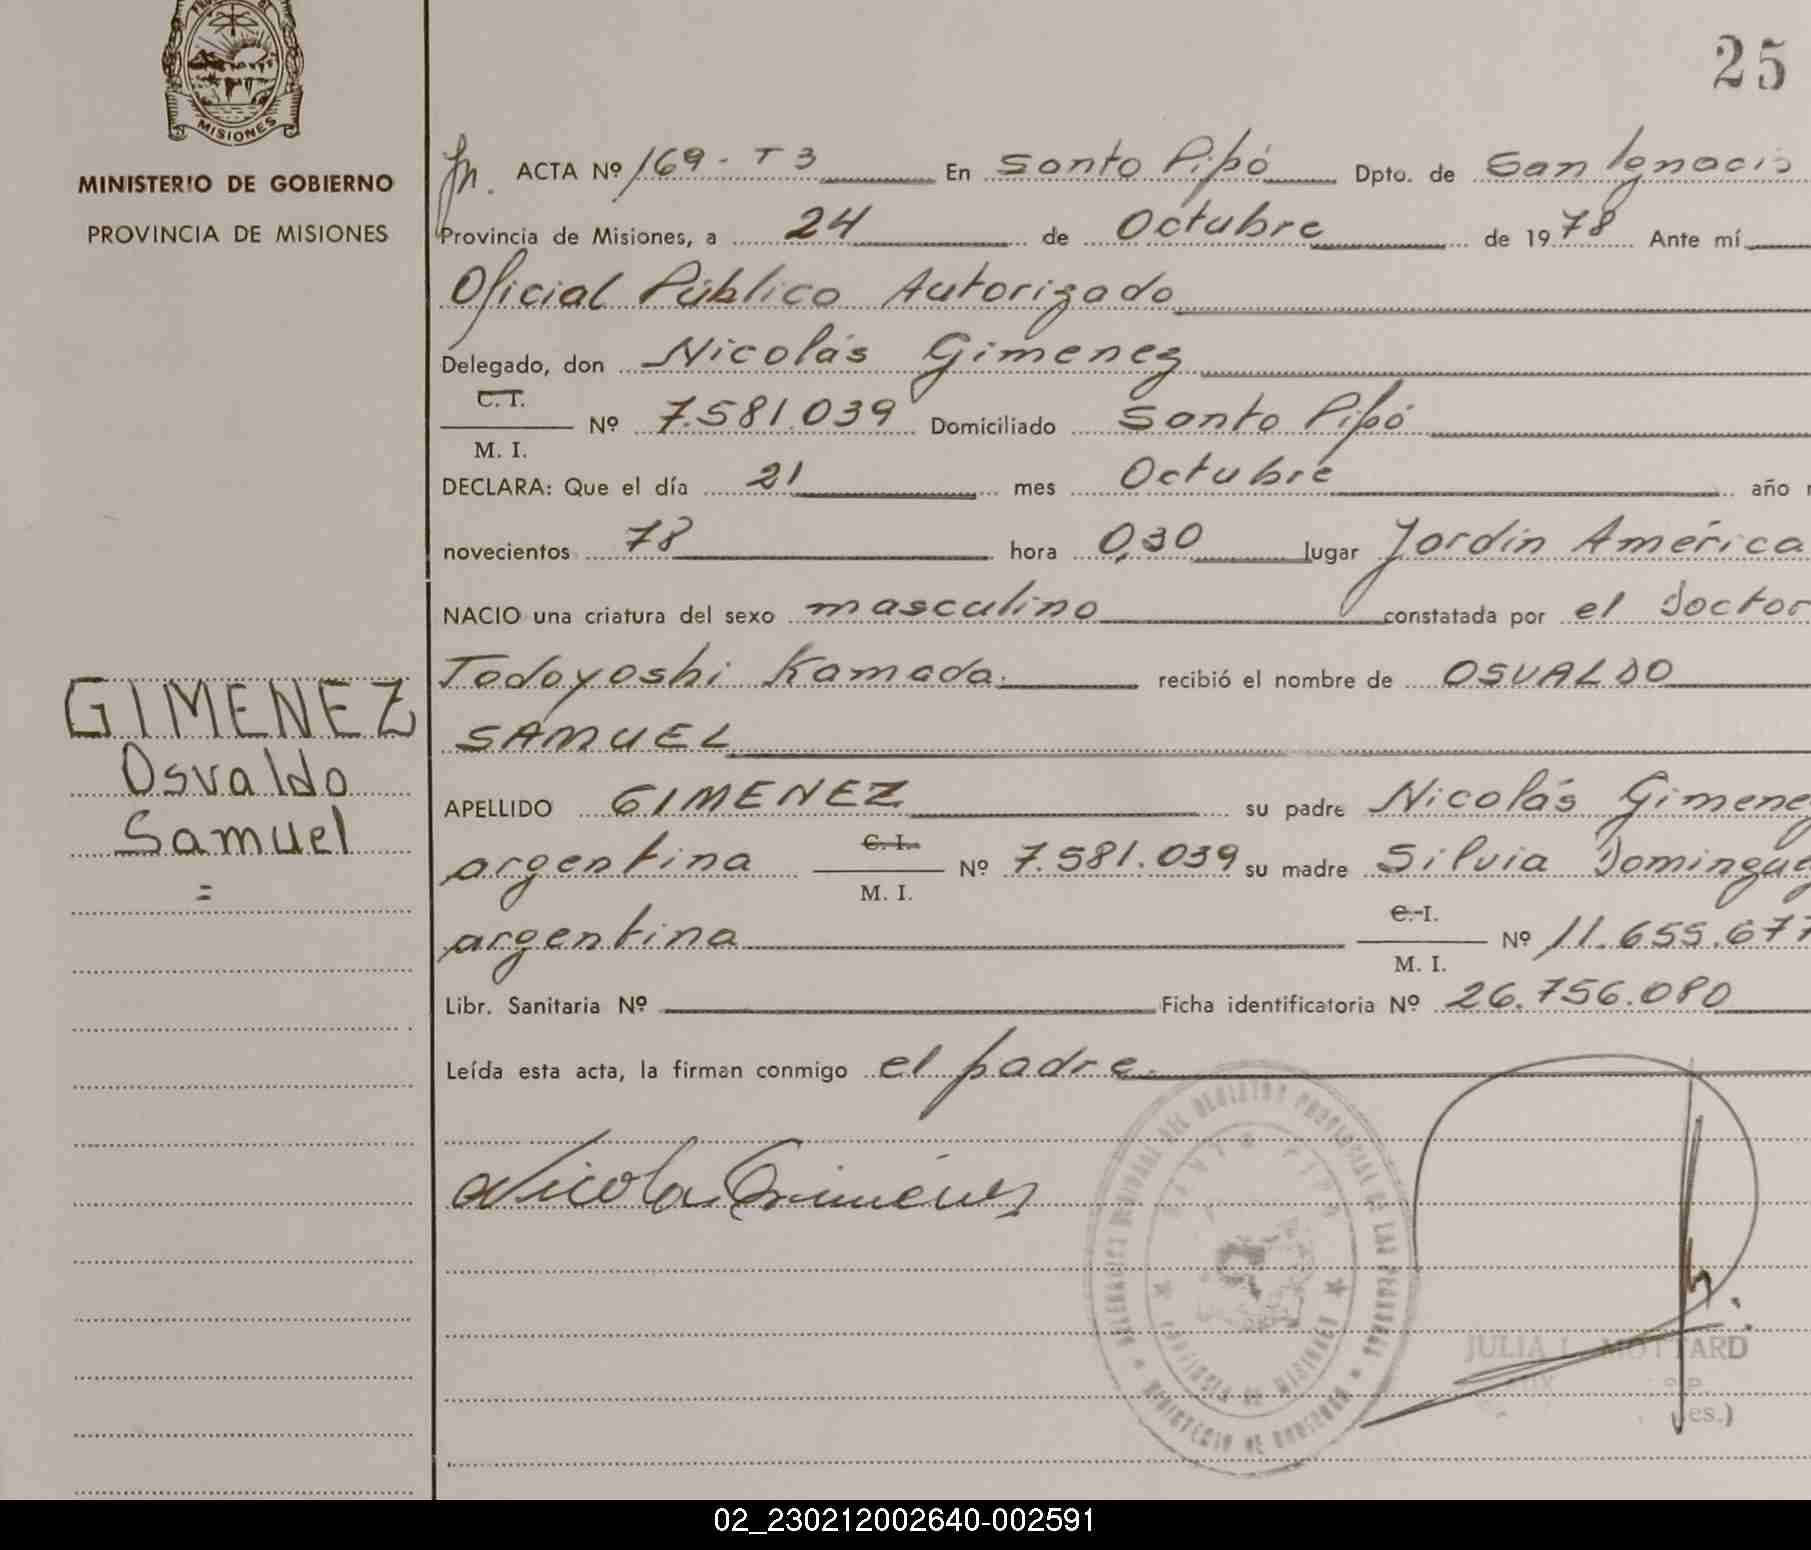 25
MISIONES
MINISTERIO DE GOBIERNO
PROVINCIA DE MISIONES
ACTA Nº 169-T3 En Santo Pipó Dpto. de San Ignacio
Provincia de Misiones, a 24 de Octubre de 1978 Ante mí
Oficial Público Autorizado
Delegado, don Nicolás Gimenez
C. I.
Nº 7.581.039 Domiciliado Santo Pipó
M. I.
DECLARA: Que el día 21 mes Octubre año
novecientos 78 hora 0,30 lugar Jardín América
NACIO una criatura del sexo masculino constatada por el Doctor
Tadayoshi Kamada. recibió el nombre de OSVALDO
SAMUEL
APELLIDO GIMENEZ su padre Nicolás Gimenez
argentina C. I. Nº 7.581.039 su madre Silvia Dominguez
M. I.
argentina C. I. Nº 11.655.677
M. I.
Libr. Sanitaria Nº Ficha identificatoria Nº 26.756.080
Leída esta acta, la firman conmigo el padre.
Nicolas Giménez
GIMENEZ
Osvaldo
Samuel
=
SANTO PIPO
PROVINCIA DE MISIONES
JULIA L. MOTTARD
02_230212002640-002591